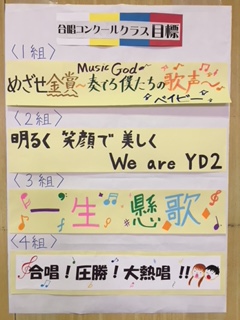 合唱コンクールクラス目標
〈1組〉
Music God♪
めざせ金賞〜奏でろ僕たちの歌声〜
♪ベイビー♪
〈2組〉
明るく 笑顔で 美しく
We are YD2
〈3組〉
一生懸歌
〈4組〉
合唱！圧勝！大熱唱！！